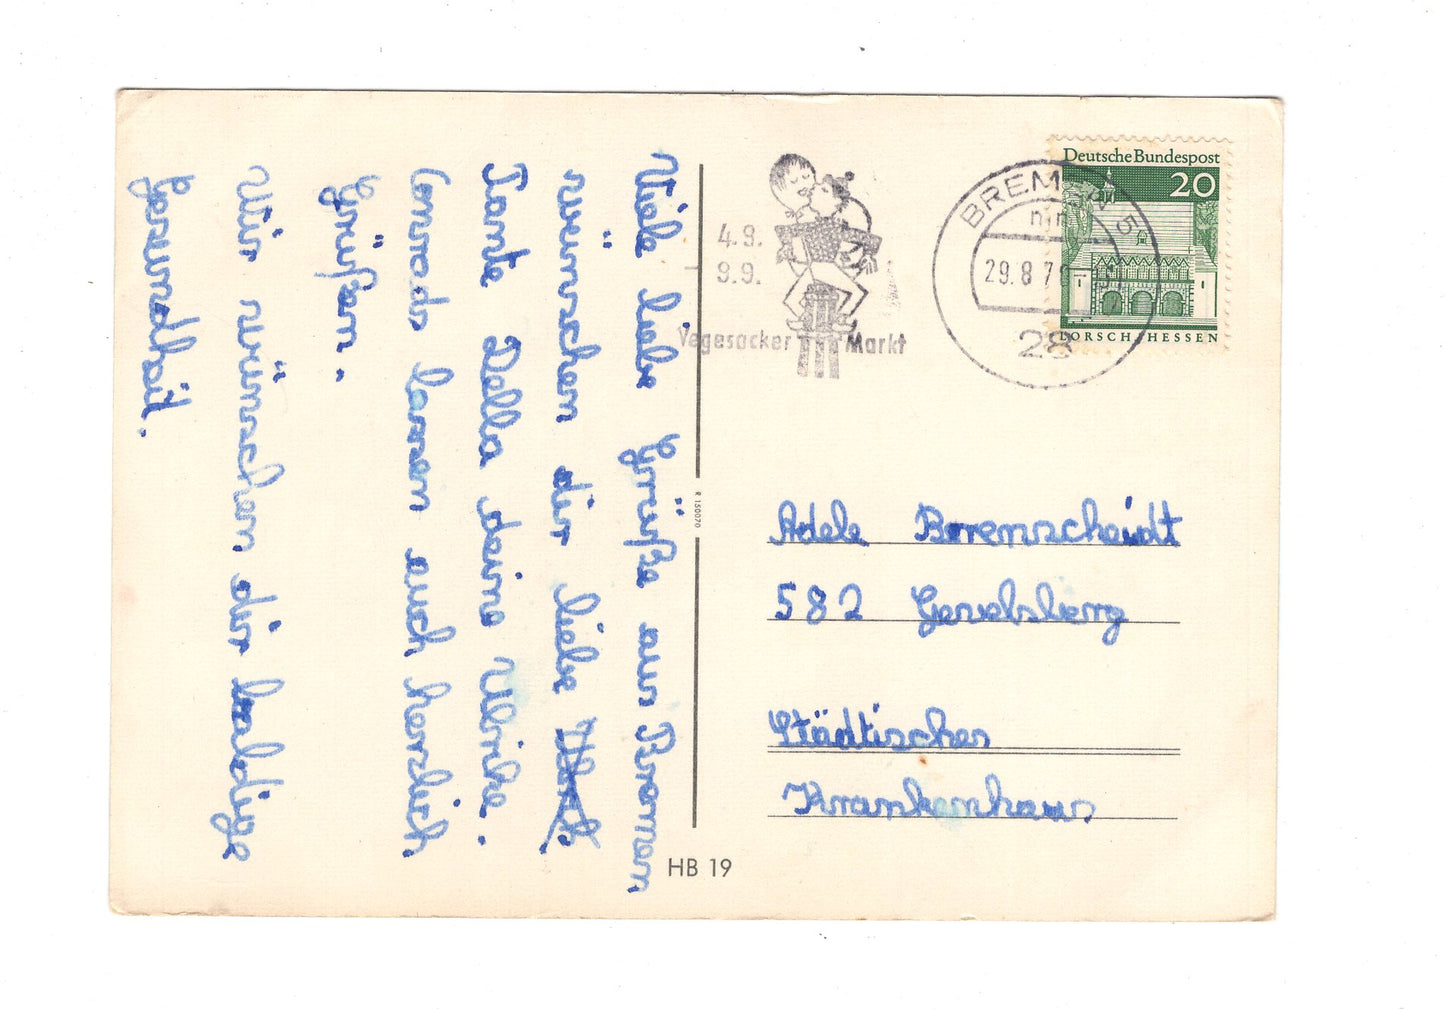 Viele liebe Grüße aus Bremen
wünschen dir liebe
Tante Della deine Ulrike.
lassen auch herslich
Grüßen.
Wir wünschen dir baldige
Gesundheit.
4.9.
9.9.
Vegesacker Markt
BREMEN 5
29.8.7
28
Deutsche Bundespost
20
LORSCH/HESSEN
R 150070
Adele Berenscheidt
582 Gevelsberg
Städtisches
Krankenhaus
HB 19